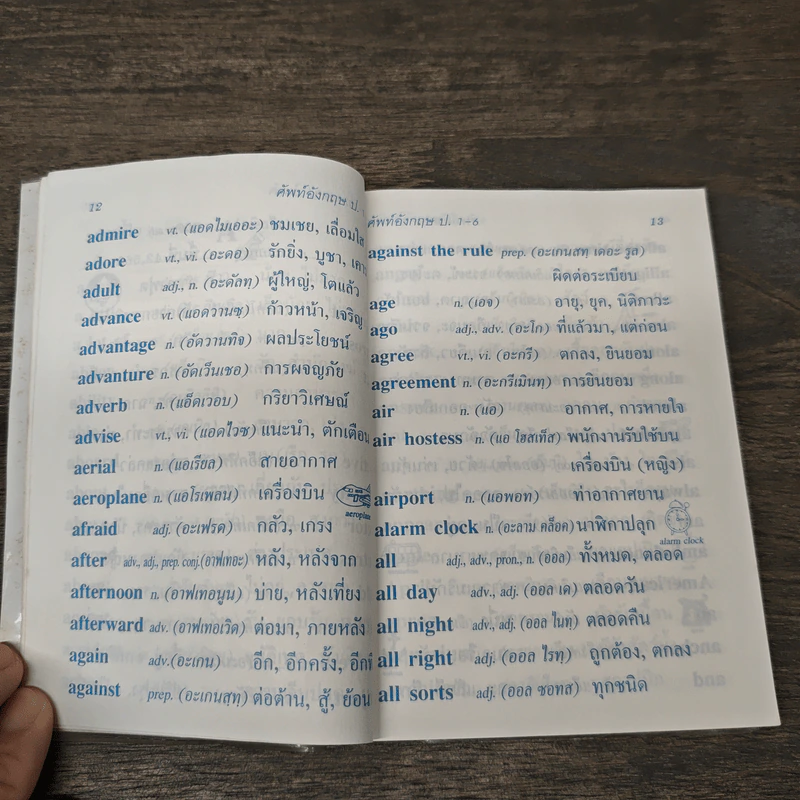 12
ศัพท์อังกฤษ ป.
admire vt. (แอดไมเออะ) ชมเชย, เลื่อมใส
adore vt., vi. (อะดอ) รักยิ่ง, บูชา,
adult adj., n. (อะดัลทฺ) ผู้ใหญ่, โตแล้ว
advance vt. (แอดวานซฺ) ก้าวหน้า, เจริญ
advantage n. (อัดวานทิจ) ผลประโยชน์
advanture n. (อัดเว็นเชอ) การผจญภัย
adverb n. (แอ็ดเวอบ) กริยาวิเศษณ์
advise vt., vi. (แอดไวซ) แนะนำ, ตักเตือน
aerial n. (แอเรียล) สายอากาศ
aeroplane n. (แอโรเพลน) เครื่องบิน
aeroplane
afraid adj. (อะเฟรด) กลัว, เกรง
after adv., adj., prep. conj. (อาฟเทอะ) หลัง, หลังจาก
afternoon n. (อาฟเทอนูน) บ่าย, หลังเที่ยง
afterward adv. (อาฟเทอเวิด) ต่อมา, ภายหลัง
again adv. (อะเกน) อีก, อีกครั้ง,
against prep. (อะเกนสทฺ) ต่อต้าน, สู้, ย้อน
ศัพท์อังกฤษ ป. 1-6
13
against the rule prep. (อะเกนสทฺ เดอะ รูล)
ผิดต่อระเบียบ
age n. (เอจ) อายุ, ยุค, นิติภาวะ
ago adj., adv. (อะโก) ที่แล้วมา, แต่ก่อน
agree vt., vi. (อะกรี) ตกลง, ยินยอม
agreement n. (อะกรีเมินทฺ) การยินยอม
air n. (แอ) อากาศ, การหายใจ
air hostess n. (แอ โฮสเท็ส) พนักงานรับใช้บน
เครื่องบิน (หญิง)
airport n. (แอพอท) ท่าอากาศยาน
alarm clock n. (อะลาม คล็อค) นาฬิกาปลุก
alarm clock
all adj., adv., pron., n. (ออล) ทั้งหมด, ตลอด
all day adv., adj. (ออล เด) ตลอดวัน
all night adv., adj. (ออล ไนทฺ) ตลอดคืน
all right adj. (ออล ไรทฺ) ถูกต้อง, ตกลง
all sorts adj. (ออล ซอทส) ทุกชนิด